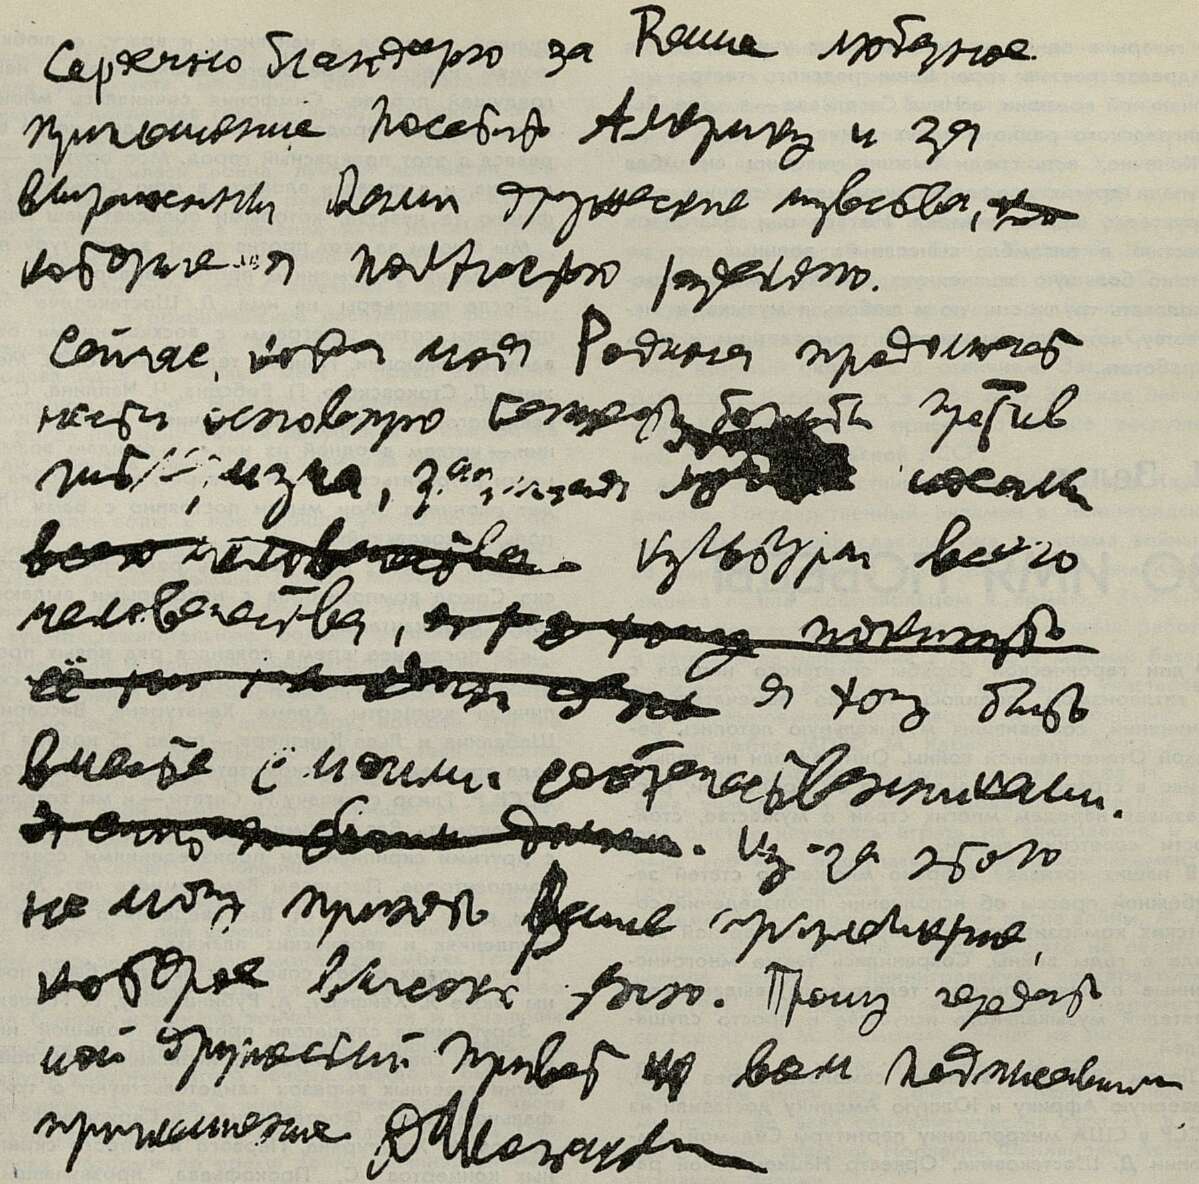 Сердечно благодарю за Ваше любезное
приглашение посетить Америку и за
выраженные Вами дружеские чувства,
которые я полностью разделяю.
Сейчас, когда моя Родина продолжает
вести беспощадную борьбу против
гитлеризма, защищая идеалы
всего человечества культуры всего
человечества, я хочу покинуть
я хочу быть
вместе с моими соотечественниками.
Из-за этого
не могу принять Ваше приглашение,
которое высоко ценю. Прошу передать
мой дружеский привет всем подписавшим
приглашение Д Шостакович